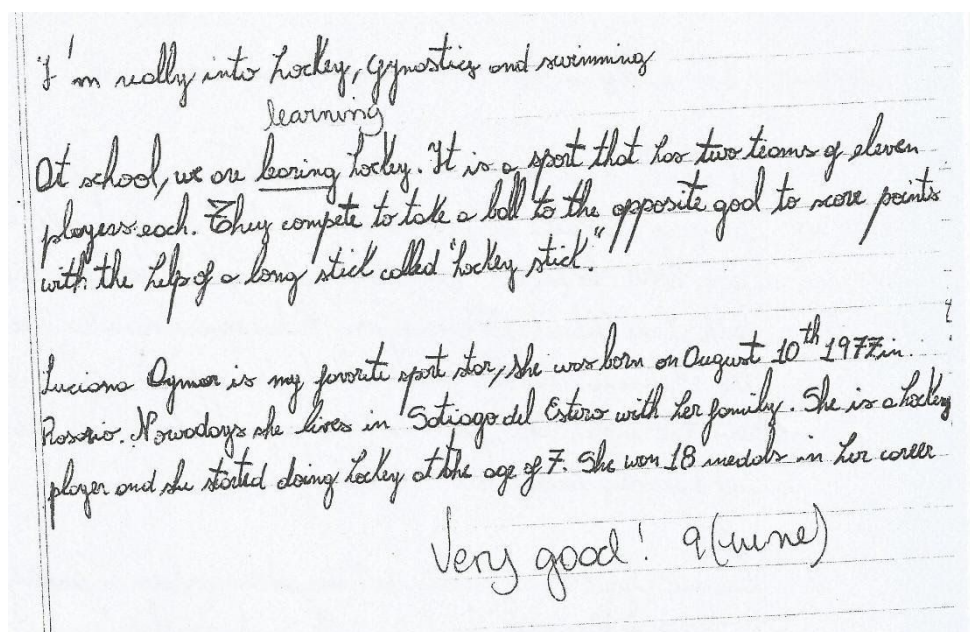 I'm really into hockey, gynostics and swimming
learning
At school, we are learing hockey. It is a sport that has two teams of eleven
players each. They compete to take a ball to the opposite goal to score points
with the help of a long stick called "hockey stick."
Luciana Aymar is my favorite sport star, she was born on August 10th 1977 in
Rosario. Nowadays she lives in Satiago del Estero with her family. She is a hockey
player and she started doing hockey at the age of 7. She won 18 medals in her career
Very good! 9 (nine)